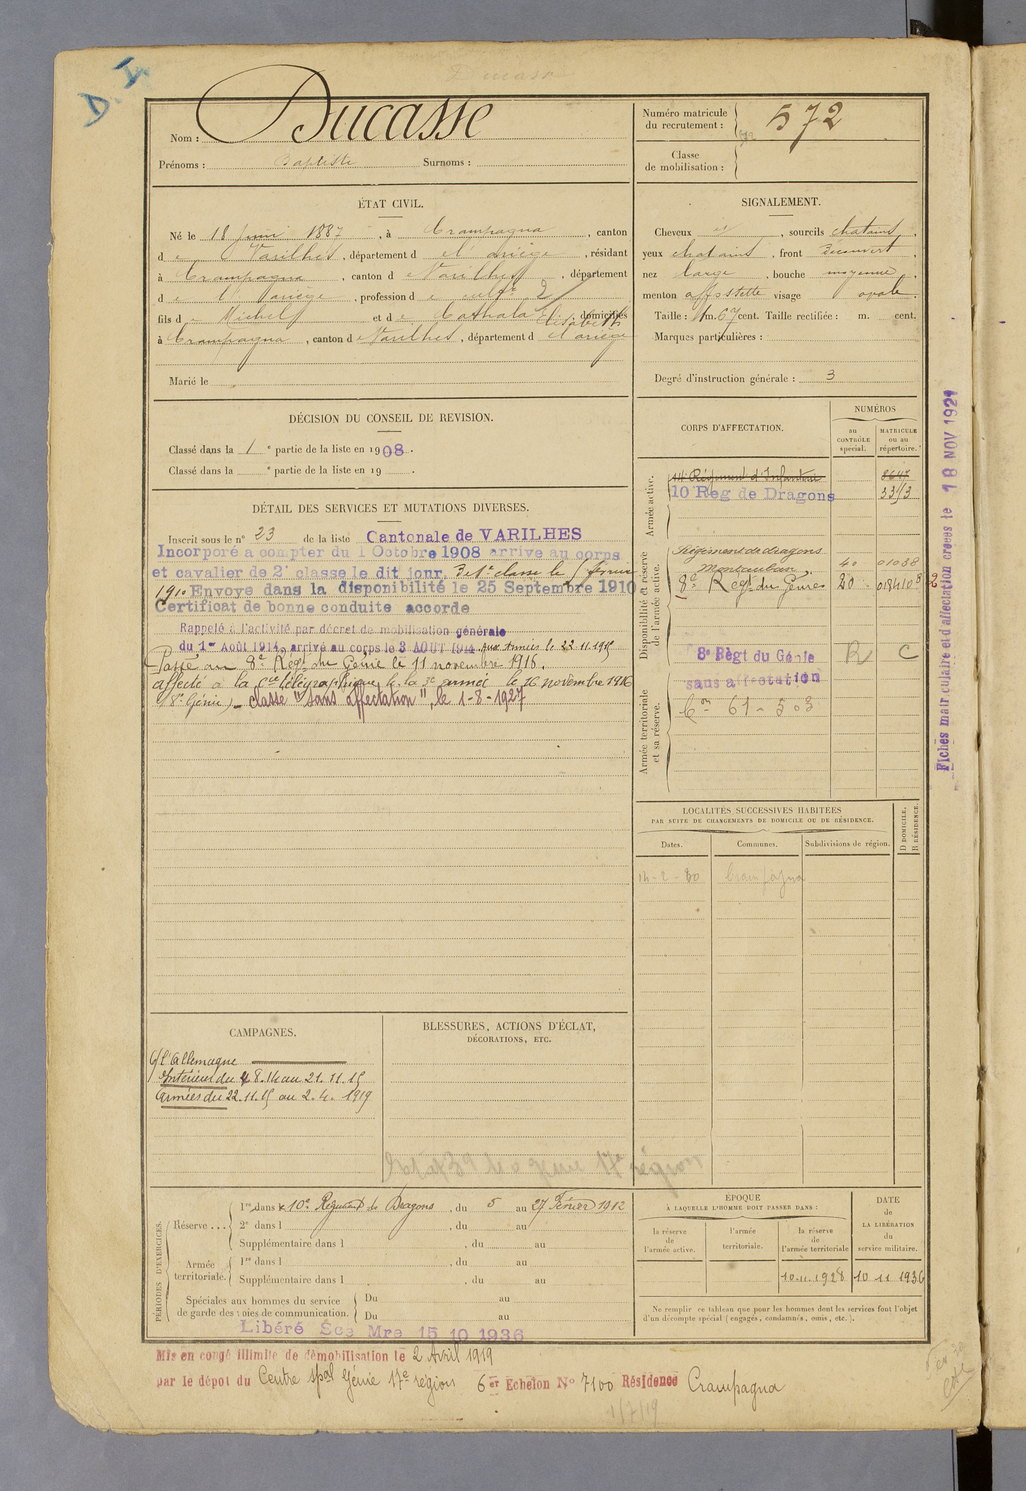 D. I.
Ducasse
Nom : Ducasse
Prénoms : Baptiste Surnoms :
Numéro matricule du recrutement : 572
Classe de mobilisation :
ÉTAT CIVIL.
Né le 18 Juin 1887, à Crampagna, canton
de Varilhes, département de l'ariège, résidant
à Crampagna, canton de Varilhes, département
de l'ariège, profession de cultr 2
fils de Michel et de Cathala Elisabeth, domiciliés
à Crampagna, canton de Varilhes, département de l'ariège
Marié le
SIGNALEMENT.
Cheveux et, sourcils chatains,
yeux chatains, front découvert,
nez large, bouche moyenne,
menton à fossette visage ovale.
Taille : 1 m. 67 cent. Taille rectifiée : m. cent.
Marques particulières :
Degré d'instruction générale : 3
DÉCISION DU CONSEIL DE REVISION.
Classé dans la 1e partie de la liste en 1908.
Classé dans la e partie de la liste en 19 .
DÉTAIL DES SERVICES ET MUTATIONS DIVERSES.
Inscrit sous le n° 23 de la liste Cantonale de VARILHES
Incorporé a compter du 1 Octobre 1908 arrive au corps
et cavalier de 2e classe le dit jour. de 1e classe le février
1910 Envoye dans la disponibilité le 25 Septembre 1910
Certificat de bonne conduite accorde
Rappelé à l'activité par décret de mobilisation générale
du 1er Août 1914, arrivé au corps le 3 AOUT 1914 aux armées le 22.11.1915
Passé au 8e Régt du Génie le 11 novembre 1916.
affecté à la Cie télégraphique de la 3e armée le 16 novembre 1916
(8e Génie) _ Classé "sans affectation", le 1-8-1927
CORPS D'AFFECTATION.
NUMÉROS
au CONTRÔLE spécial.
MATRICULE ou au répertoire.
Armée active.
14e Régiment d'Infanterie
10 Reg de Dragons 3313
Disponibilité et réserve de l'armée active.
Régiment de dragons
Montauban 40 01038
8e Regt du Génie 20
Armée territoriale et sa réserve.
8e Règt du Génie R C
sans affectation
Con 61 - 503
Fiches matriculaire et d'affectation créées le 18 NOV 1921
LOCALITÉS SUCCESSIVES HABITÉES
PAR SUITE DE CHANGEMENTS DE DOMICILE OU DE RÉSIDENCE.
D DOMICILE. R RÉSIDENCE.
Dates. Communes. Subdivisions de région.
Crampagna
CAMPAGNES.
C/ l'Allemagne
Intérieur du 4 8.14 au 21.11.15
Armées du 22.11.15 au 2.4.1919
BLESSURES, ACTIONS D'ÉCLAT,
DÉCORATIONS, ETC.
PÉRIODES D'EXERCICES.
Réserve ...
1re dans le 10e Régiment de Dragons, du 5 au 27 Février 1912
2e dans l , du au
Supplémentaire dans l , du au
Armée territoriale.
1re dans l , du au
Supplémentaire dans l , du au
Spéciales aux hommes du service de garde des voies de communication.
Du au
Du au
Libéré Sce Mre 15 10 1936
ÉPOQUE
À LAQUELLE L'HOMME DOIT PASSER DANS :
la réserve de l'armée active.
l'armée territoriale.
la réserve de l'armée territoriale
DATE DE LA LIBÉRATION du service militaire.
10.11.1928 10 11 1936
Ne remplir ce tableau que pour les hommes dont les services font l'objet
d'un décompte spécial (engagés, condamnés, omis, etc.).
Mis en congé illimité de démobilisation le 2 Avril 1919
par le dépot du Centre spal Génie 17e région 6er Echelon No 7100 Résidence Crampagna
1/7/19